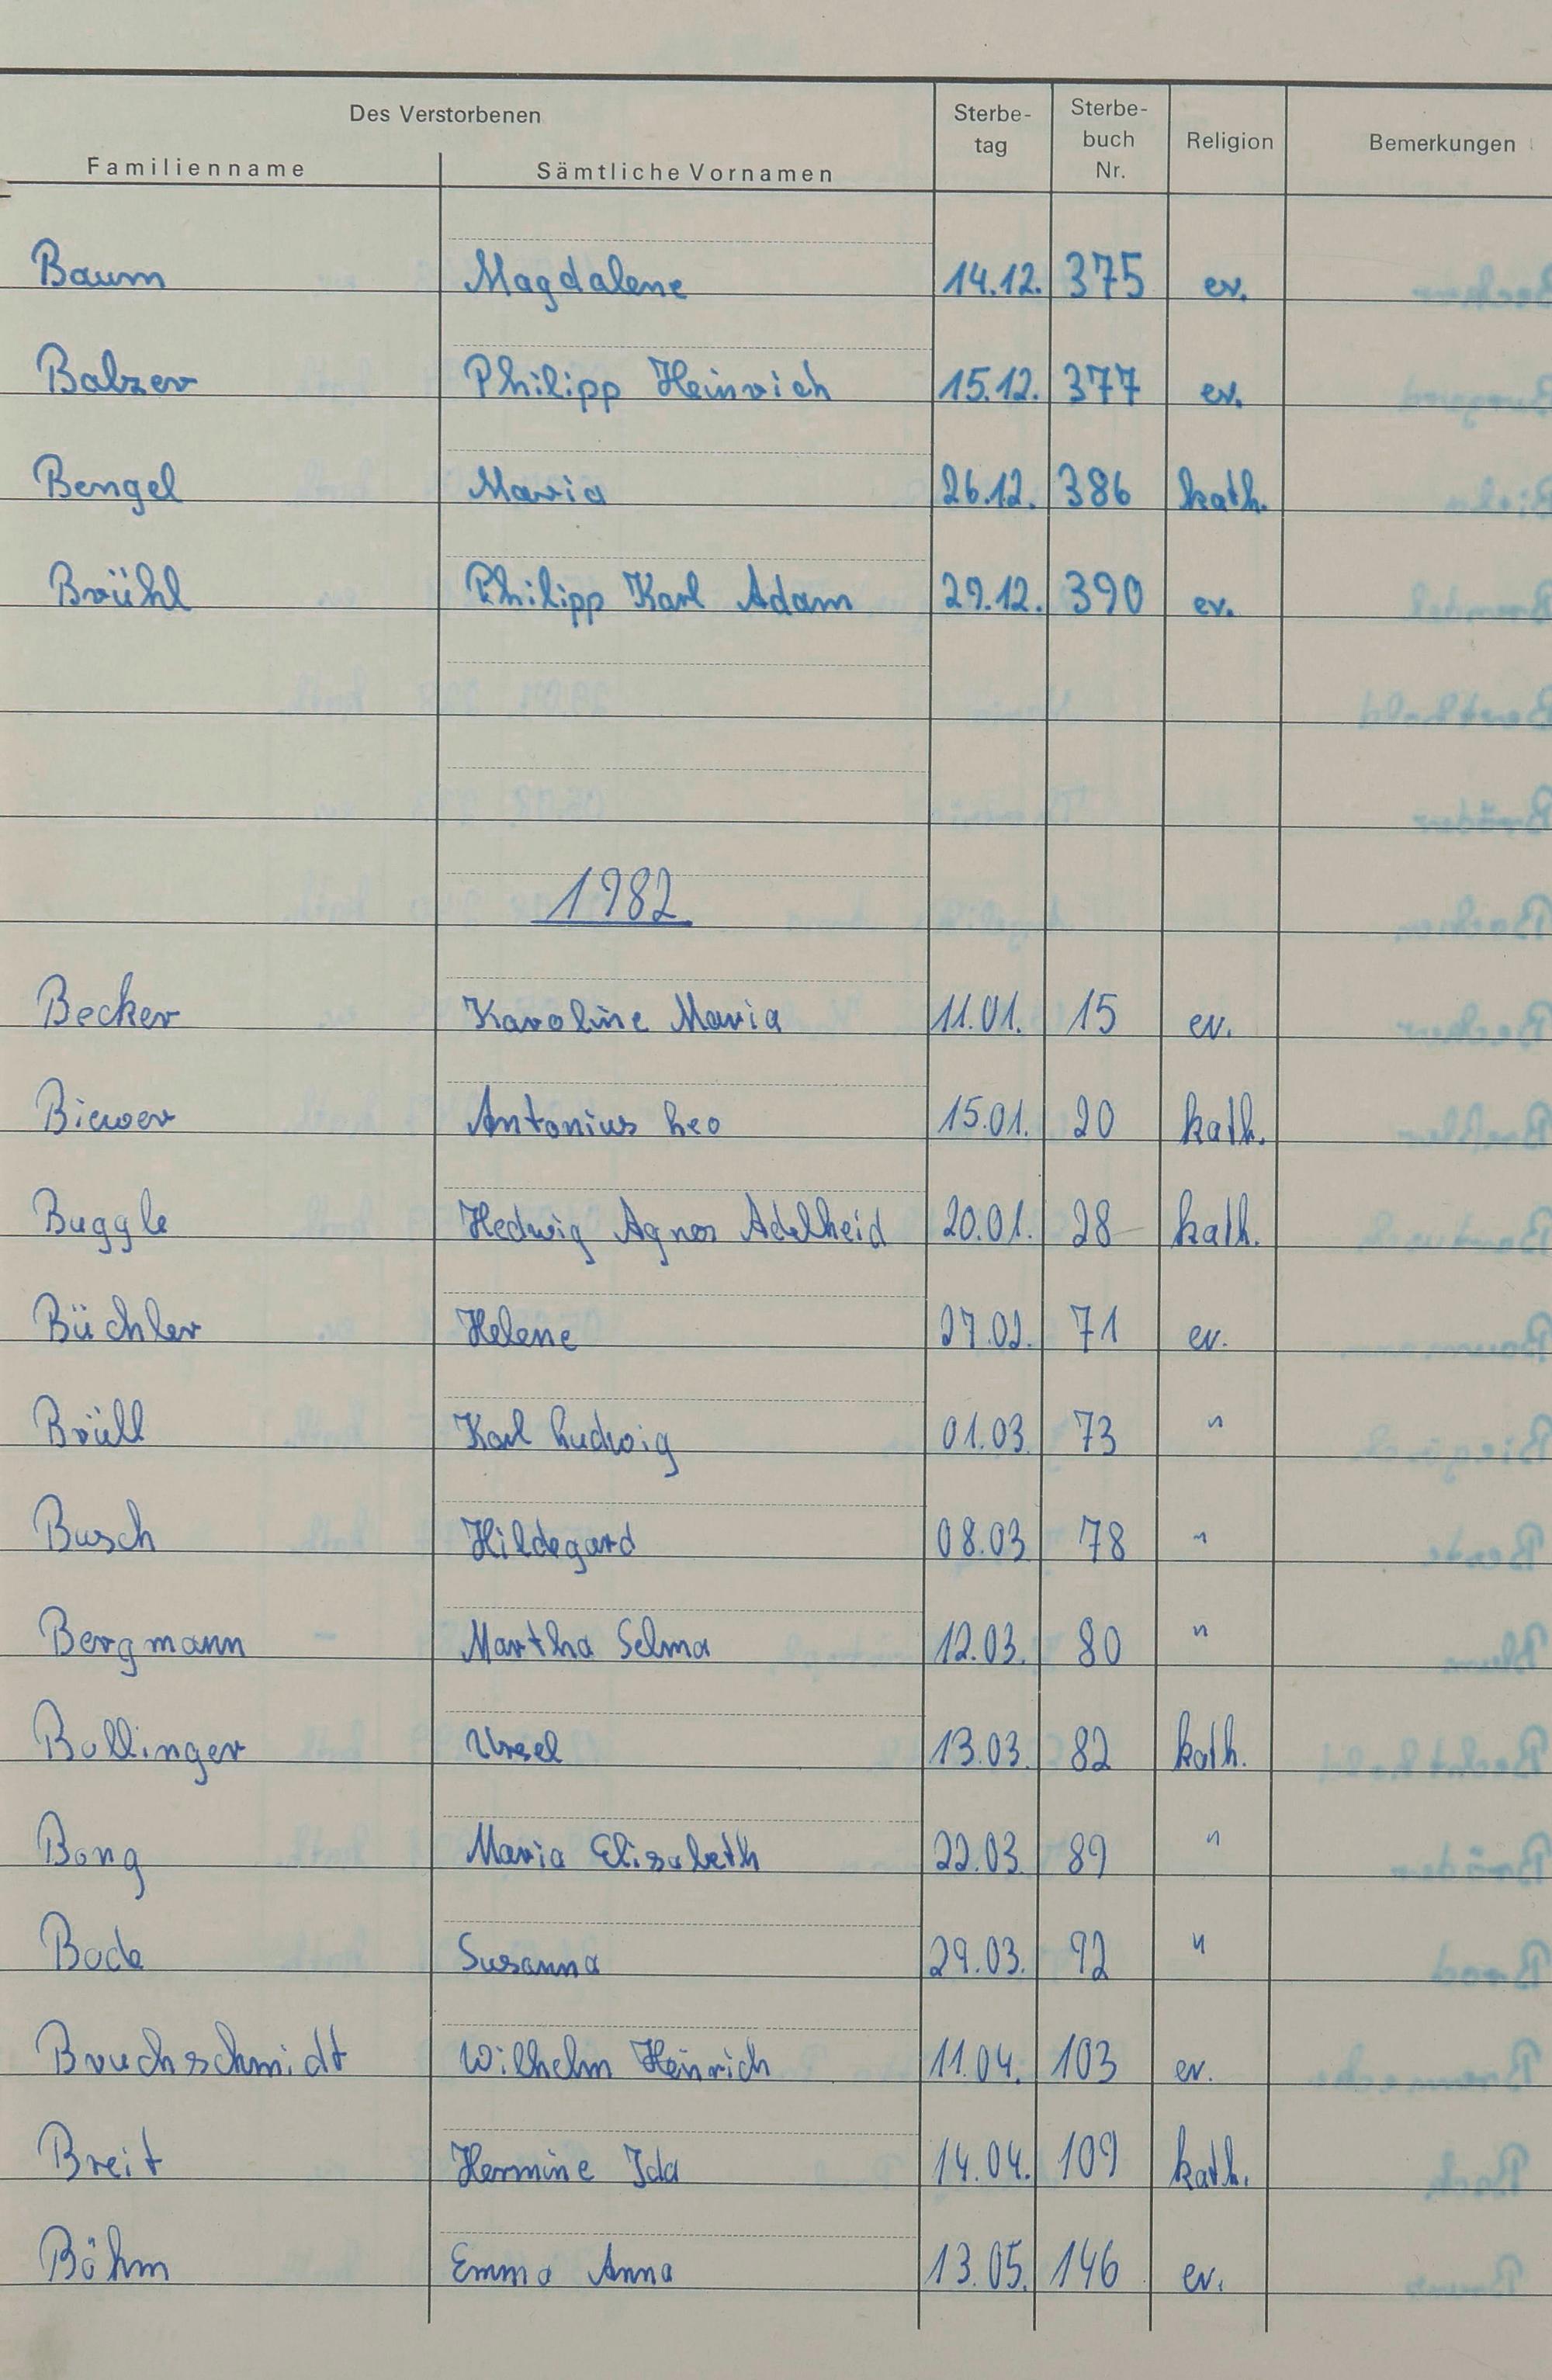 Des Verstorbenen
Familienname Sämtliche Vornamen Sterbe-tag Sterbe-buch Nr. Religion Bemerkungen
Baum Magdalene 14.12. 375 ev.
Balzer Philipp Heinrich 15.12. 377 ev.
Bengel Maria 26.12. 386 kath.
Brühl Philipp Karl Adam 29.12. 390 ev.
1982
Becker Karoline Maria 11.01. 15 ev.
Biewer Antonius Leo 15.01. 20 kath.
Buggle Hedwig Agnes Adelheid 20.01. 28 kath.
Büchler Helene 27.02. 71 ev.
Brüll Karl Ludwig 01.03. 73 "
Busch Hildegard 08.03 78 "
Bergmann Martha Selma 12.03. 80 "
Bollinger Ursel 13.03. 82 kath.
Bong Maria Elisabeth 22.03. 89 "
Bode Susanna 29.03. 92 "
Bruchschmidt Wilhelm Heinrich 11.04. 103 ev.
Breit Hermine Ida 14.04. 109 kath.
Böhm Emma Anna 13.05. 146 ev.